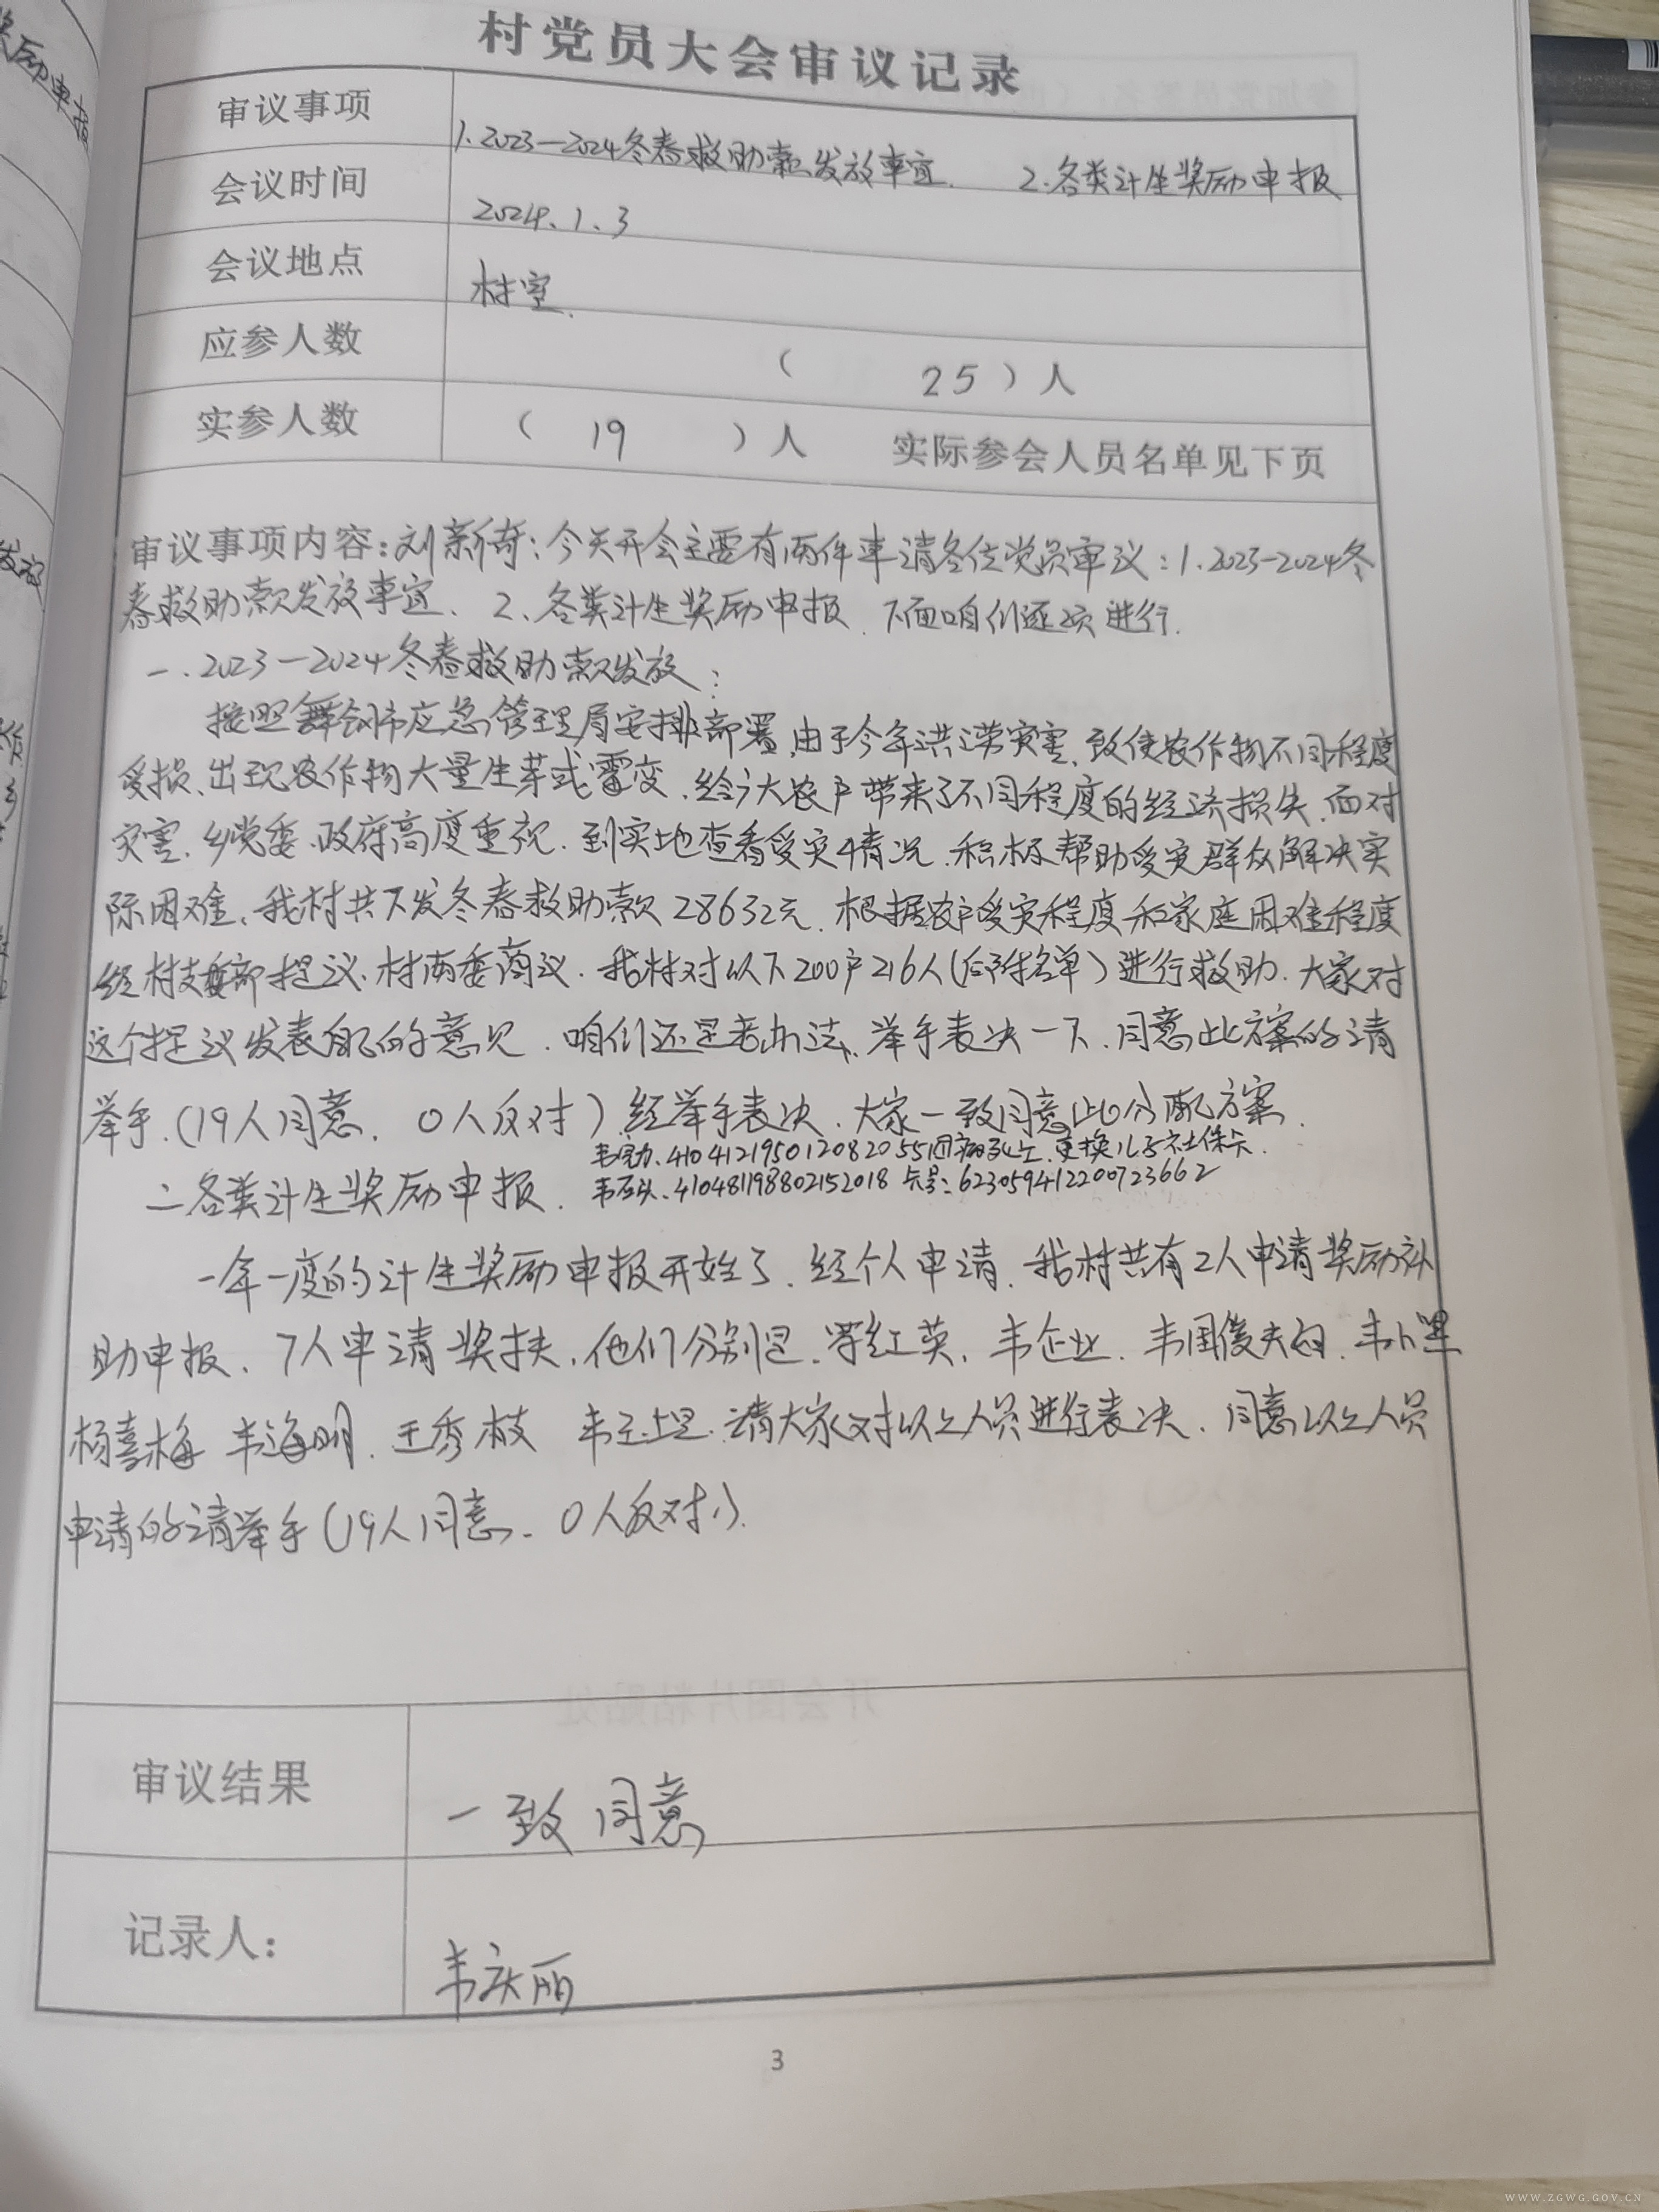 村党员大会审议记录
审议事项 1.2023—2024冬春救助款发放事宜. 2.各类计生奖励申报
会议时间 2024.1.3
会议地点 村室.
应参人数 ( 25 ) 人
实参人数 ( 19 ) 人 实际参会人员名单见下页
审议事项内容:刘新绮:今天开会主要有两件事请各位党员审议:1.2023-2024冬
春救助款发放事宜、2、各类计生奖励申报.下面咱们逐项进行.
一.2023—2024冬春救助款发放:
按照舞钢市应急管理局安排部署,由于今年洪涝灾害,致使农作物不同程度
受损、出现农作物大量生芽或霉变,给广大农户带来了不同程度的经济损失,面对
灾害,乡党委、政府高度重视.到实地查看受灾情况,积极帮助受灾群众解决实
际困难,我村共下发冬春救助款28632元.根据农户受灾程度和家庭困难程度
经村支部提议、村两委商议.我村对以下200户216人(后附名单)进行救助.大家对
这个提议发表自己的意见.咱们还是老办法,举手表决一下.同意此方案的请
举手.(19人同意. 0人反对)经举手表决.大家一致同意此分配方案.
410412195012082055因病死亡.更换儿子社保卡.
二各类计生奖励申报. 韦石头.410481198802152018 卡号:623059412200723662
一年一度的计生奖励申报开始了.经个人申请.我村共有2人申请奖励补
助申报、7人申请奖扶,他们分别是.红英,韦企业.韦国俊夫妇.韦小黑
杨喜梅 韦海明.王秀枝 韦 请大家对以上人员进行表决.同意以上人员
申请的请举手(19人同意. 0人反对).
审议结果 一致同意
记录人: 韦庆丽
3
WWW.ZGWG.GOV.CN